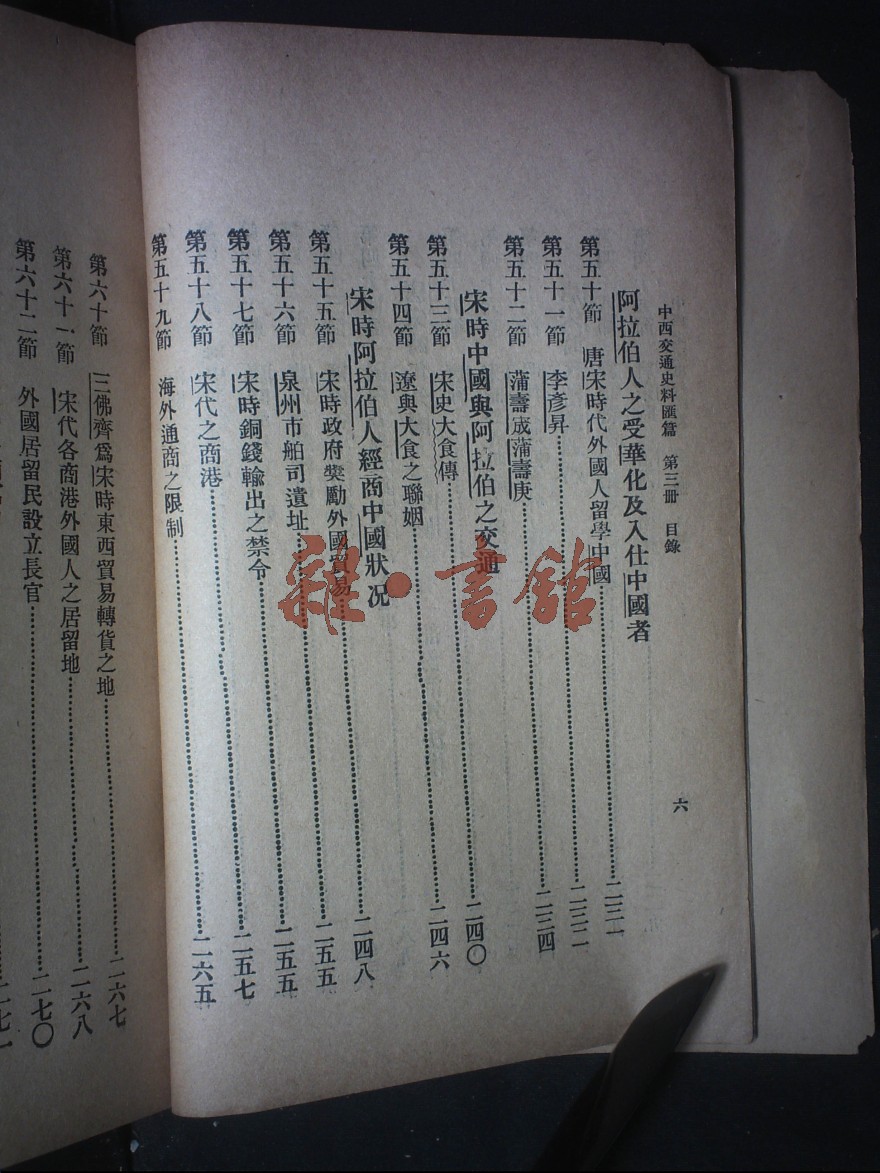 中西交通史料匯篇 第三册 目錄 六
阿拉伯人之受華化及入仕中國者
第五十節 唐宋時代外國人留學中國……二三一
第五十一節 李彥昇……二三二
第五十二節 蒲壽宬蒲壽庚……二三四
宋時中國與阿拉伯之交通
第五十三節 宋史大食傳……二四〇
第五十四節 遼與大食之聯姻……二四六
宋時阿拉伯人經商中國狀况
第五十五節 宋時政府獎勵外國貿易……二四八
第五十六節 泉州市舶司遺址……二五五
第五十七節 宋時銅錢輸出之禁令……二五五
第五十八節 宋代之商港……二五七
第五十九節 海外通商之限制……二六五
第六十節 三佛齊爲宋時東西貿易轉貨之地……二六七
第六十一節 宋代各商港外國人之居留地……二六八
第六十二節 外國居留民設立長官……二七〇
二七一
雜·書館